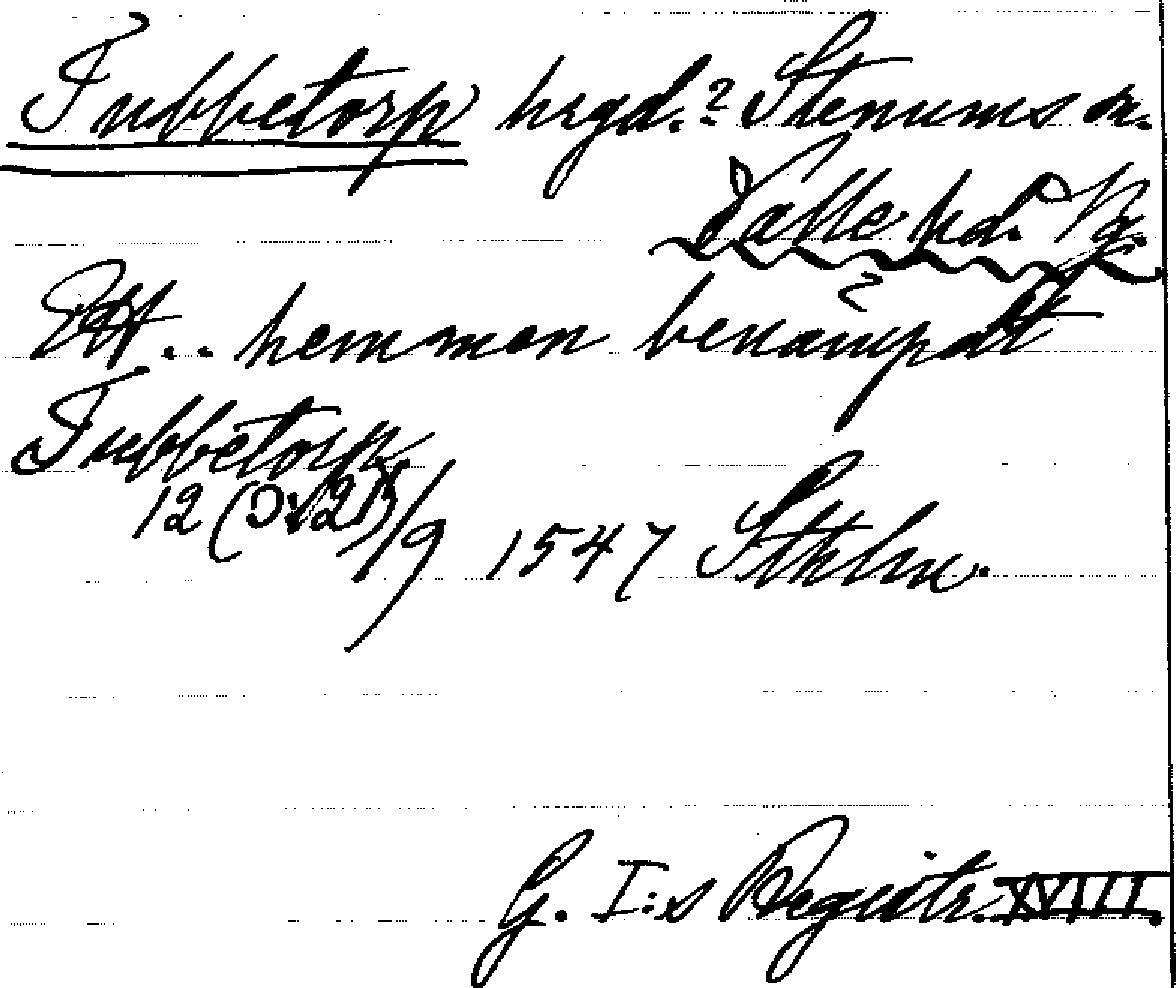 Tubbetorp hrgd.? Stenums sn.
Valle hd. Vg.
Ett .. hemman benämpdt
Tubbetorp
12 ( 12)/9 1547 Sthlm.
G. I:s Registr. XVIII.